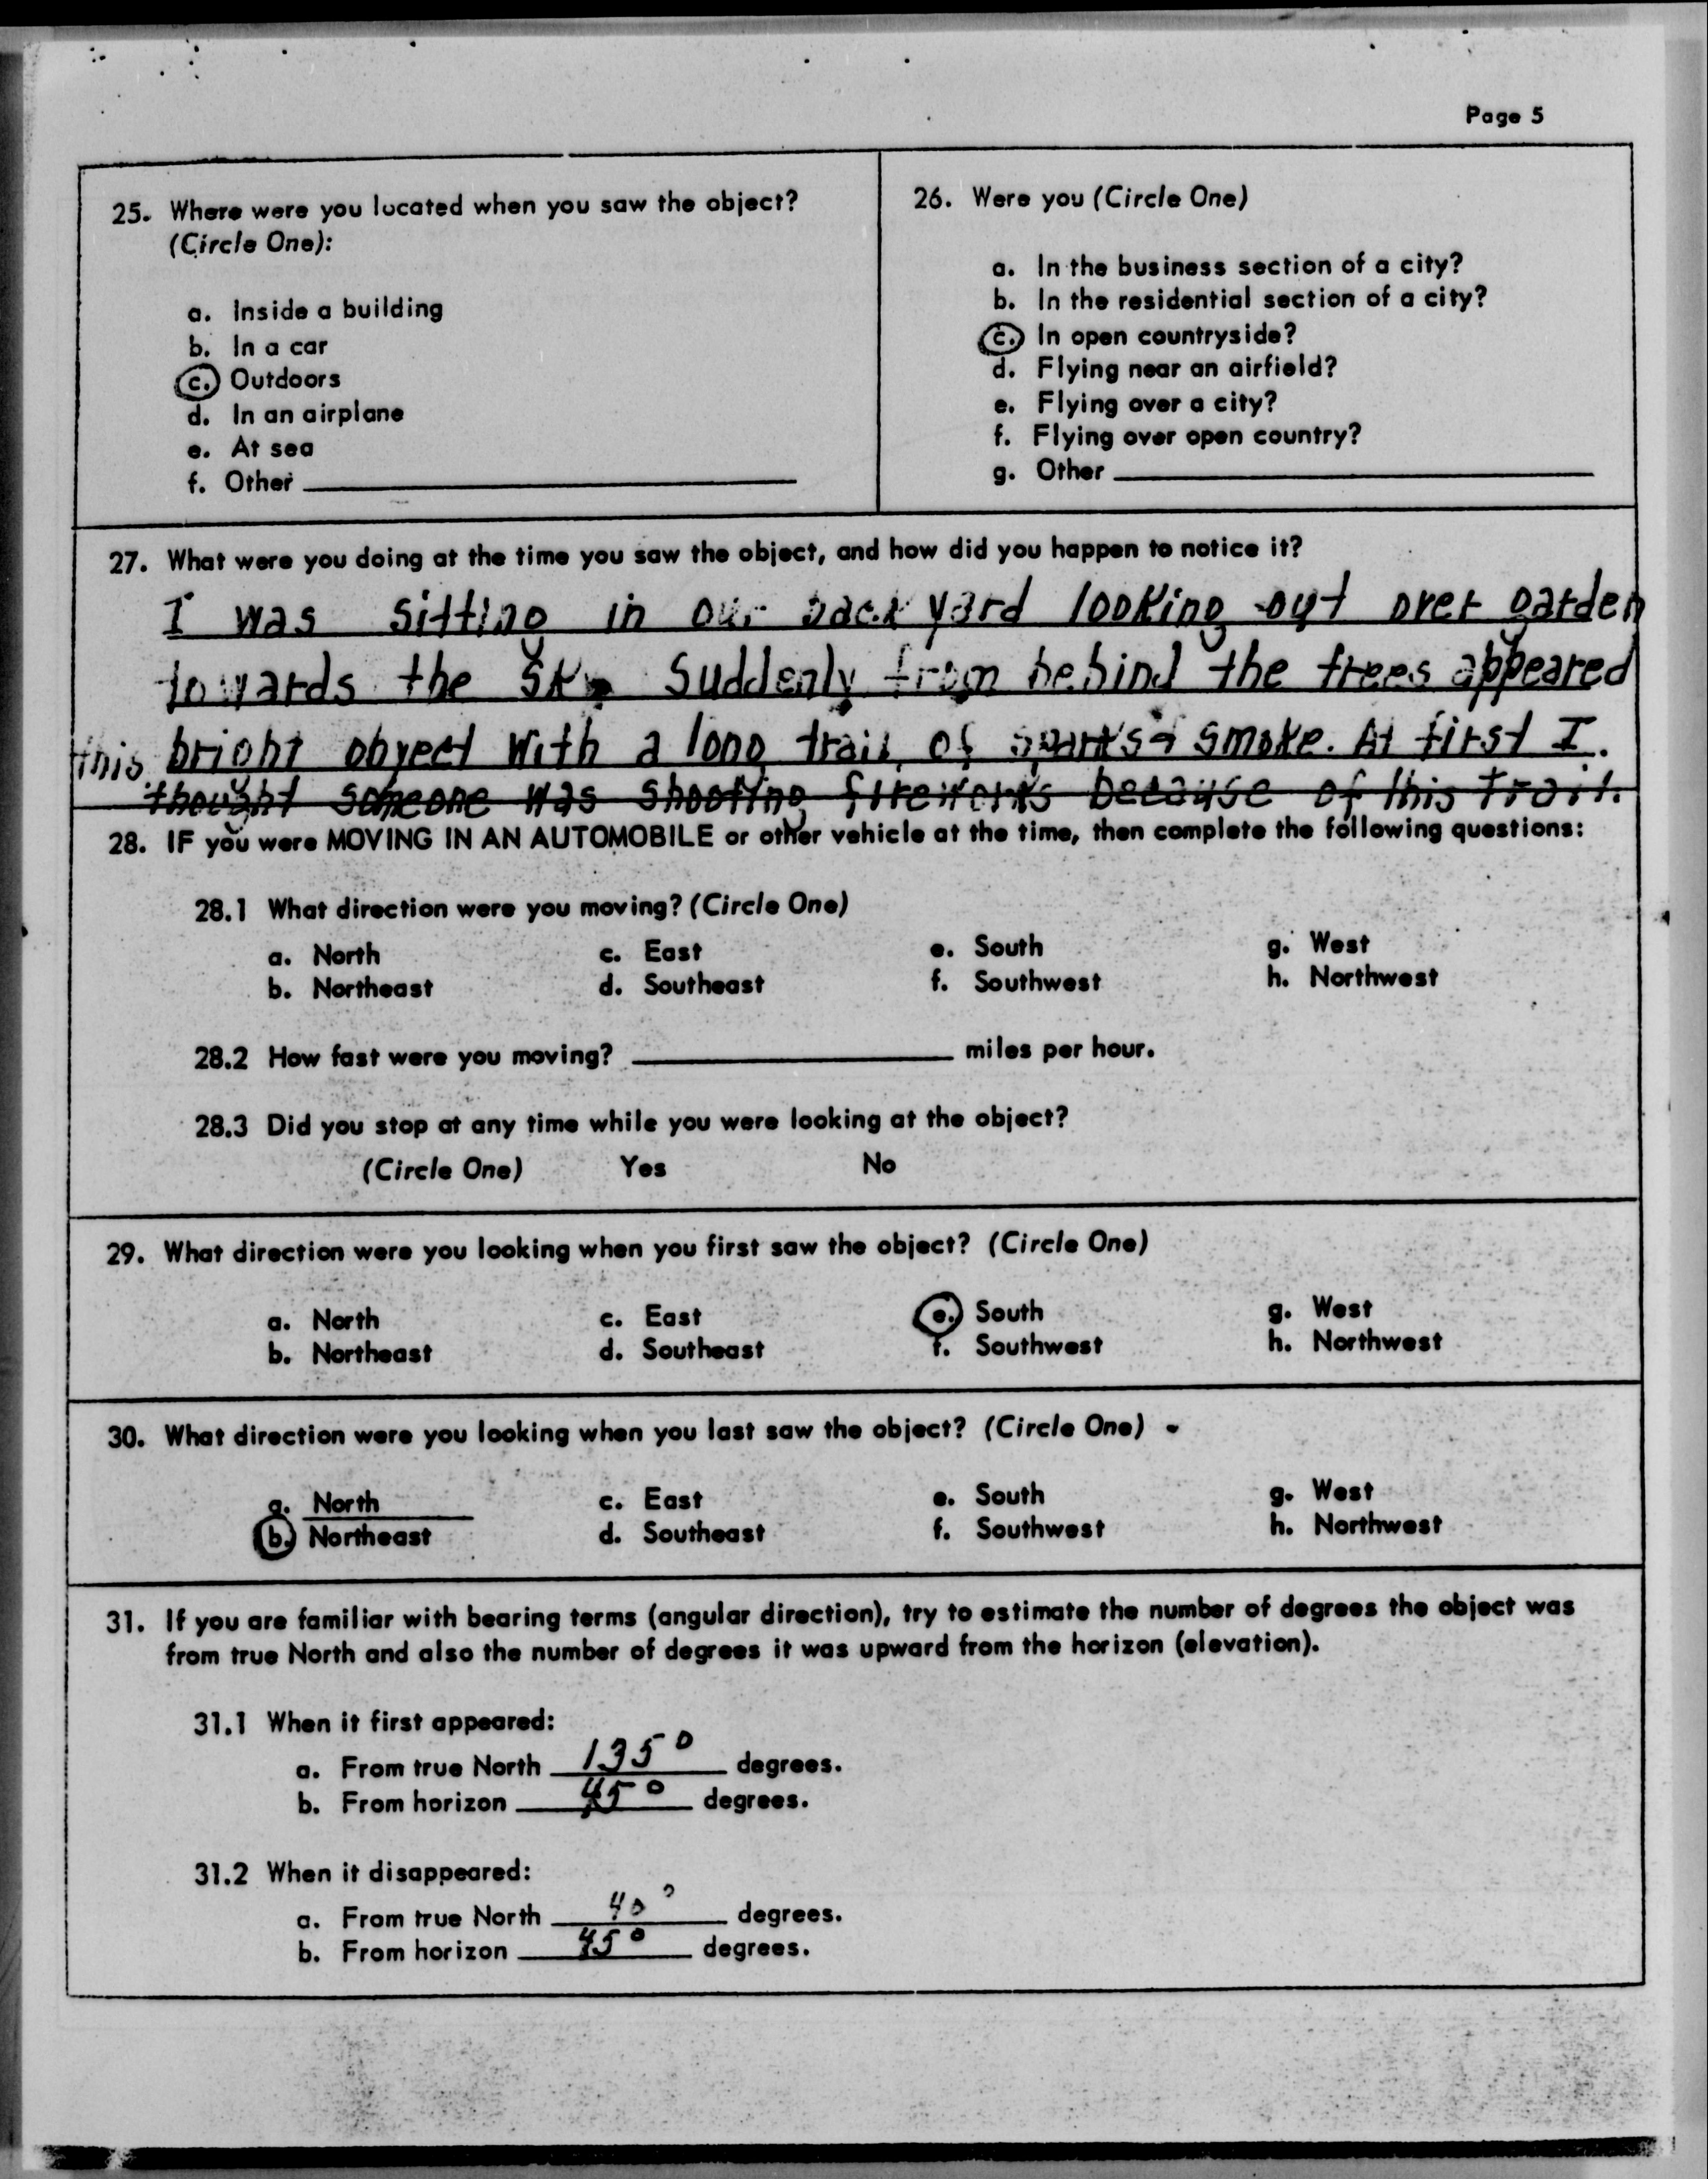 Page 5
25. Where were you located when you saw the object?
(Circle One):
a. Inside a building
b. In a car
c. Outdoors
d. In an airplane
e. At sea
f. Other
26. Were you (Circle One)
a. In the business section of a city?
b. In the residential section of a city?
c. In open countryside?
d. Flying near an airfield?
e. Flying over a city?
f. Flying over open country?
g. Other
27. What were you doing at the time you saw the object, and how did you happen to notice it?
I was sitting in our back yard looking out over garden
towards the sky. Suddenly from behind the trees appeared
this bright object with a long trail of sparks & smoke. At first I
thought someone was shooting fireworks because of this trail.
28. IF you were MOVING IN AN AUTOMOBILE or other vehicle at the time, then complete the following questions:
28.1 What direction were you moving? (Circle One)
a. North c. East e. South g. West
b. Northeast d. Southeast f. Southwest h. Northwest
28.2 How fast were you moving? miles per hour.
28.3 Did you stop at any time while you were looking at the object?
(Circle One) Yes No
29. What direction were you looking when you first saw the object? (Circle One)
a. North c. East e. South g. West
b. Northeast d. Southeast f. Southwest h. Northwest
30. What direction were you looking when you last saw the object? (Circle One)
a. North c. East e. South g. West
b. Northeast d. Southeast f. Southwest h. Northwest
31. If you are familiar with bearing terms (angular direction), try to estimate the number of degrees the object was
from true North and also the number of degrees it was upward from the horizon (elevation).
31.1 When it first appeared:
a. From true North 135° degrees.
b. From horizon 45° degrees.
31.2 When it disappeared:
a. From true North 40° degrees.
b. From horizon 45° degrees.